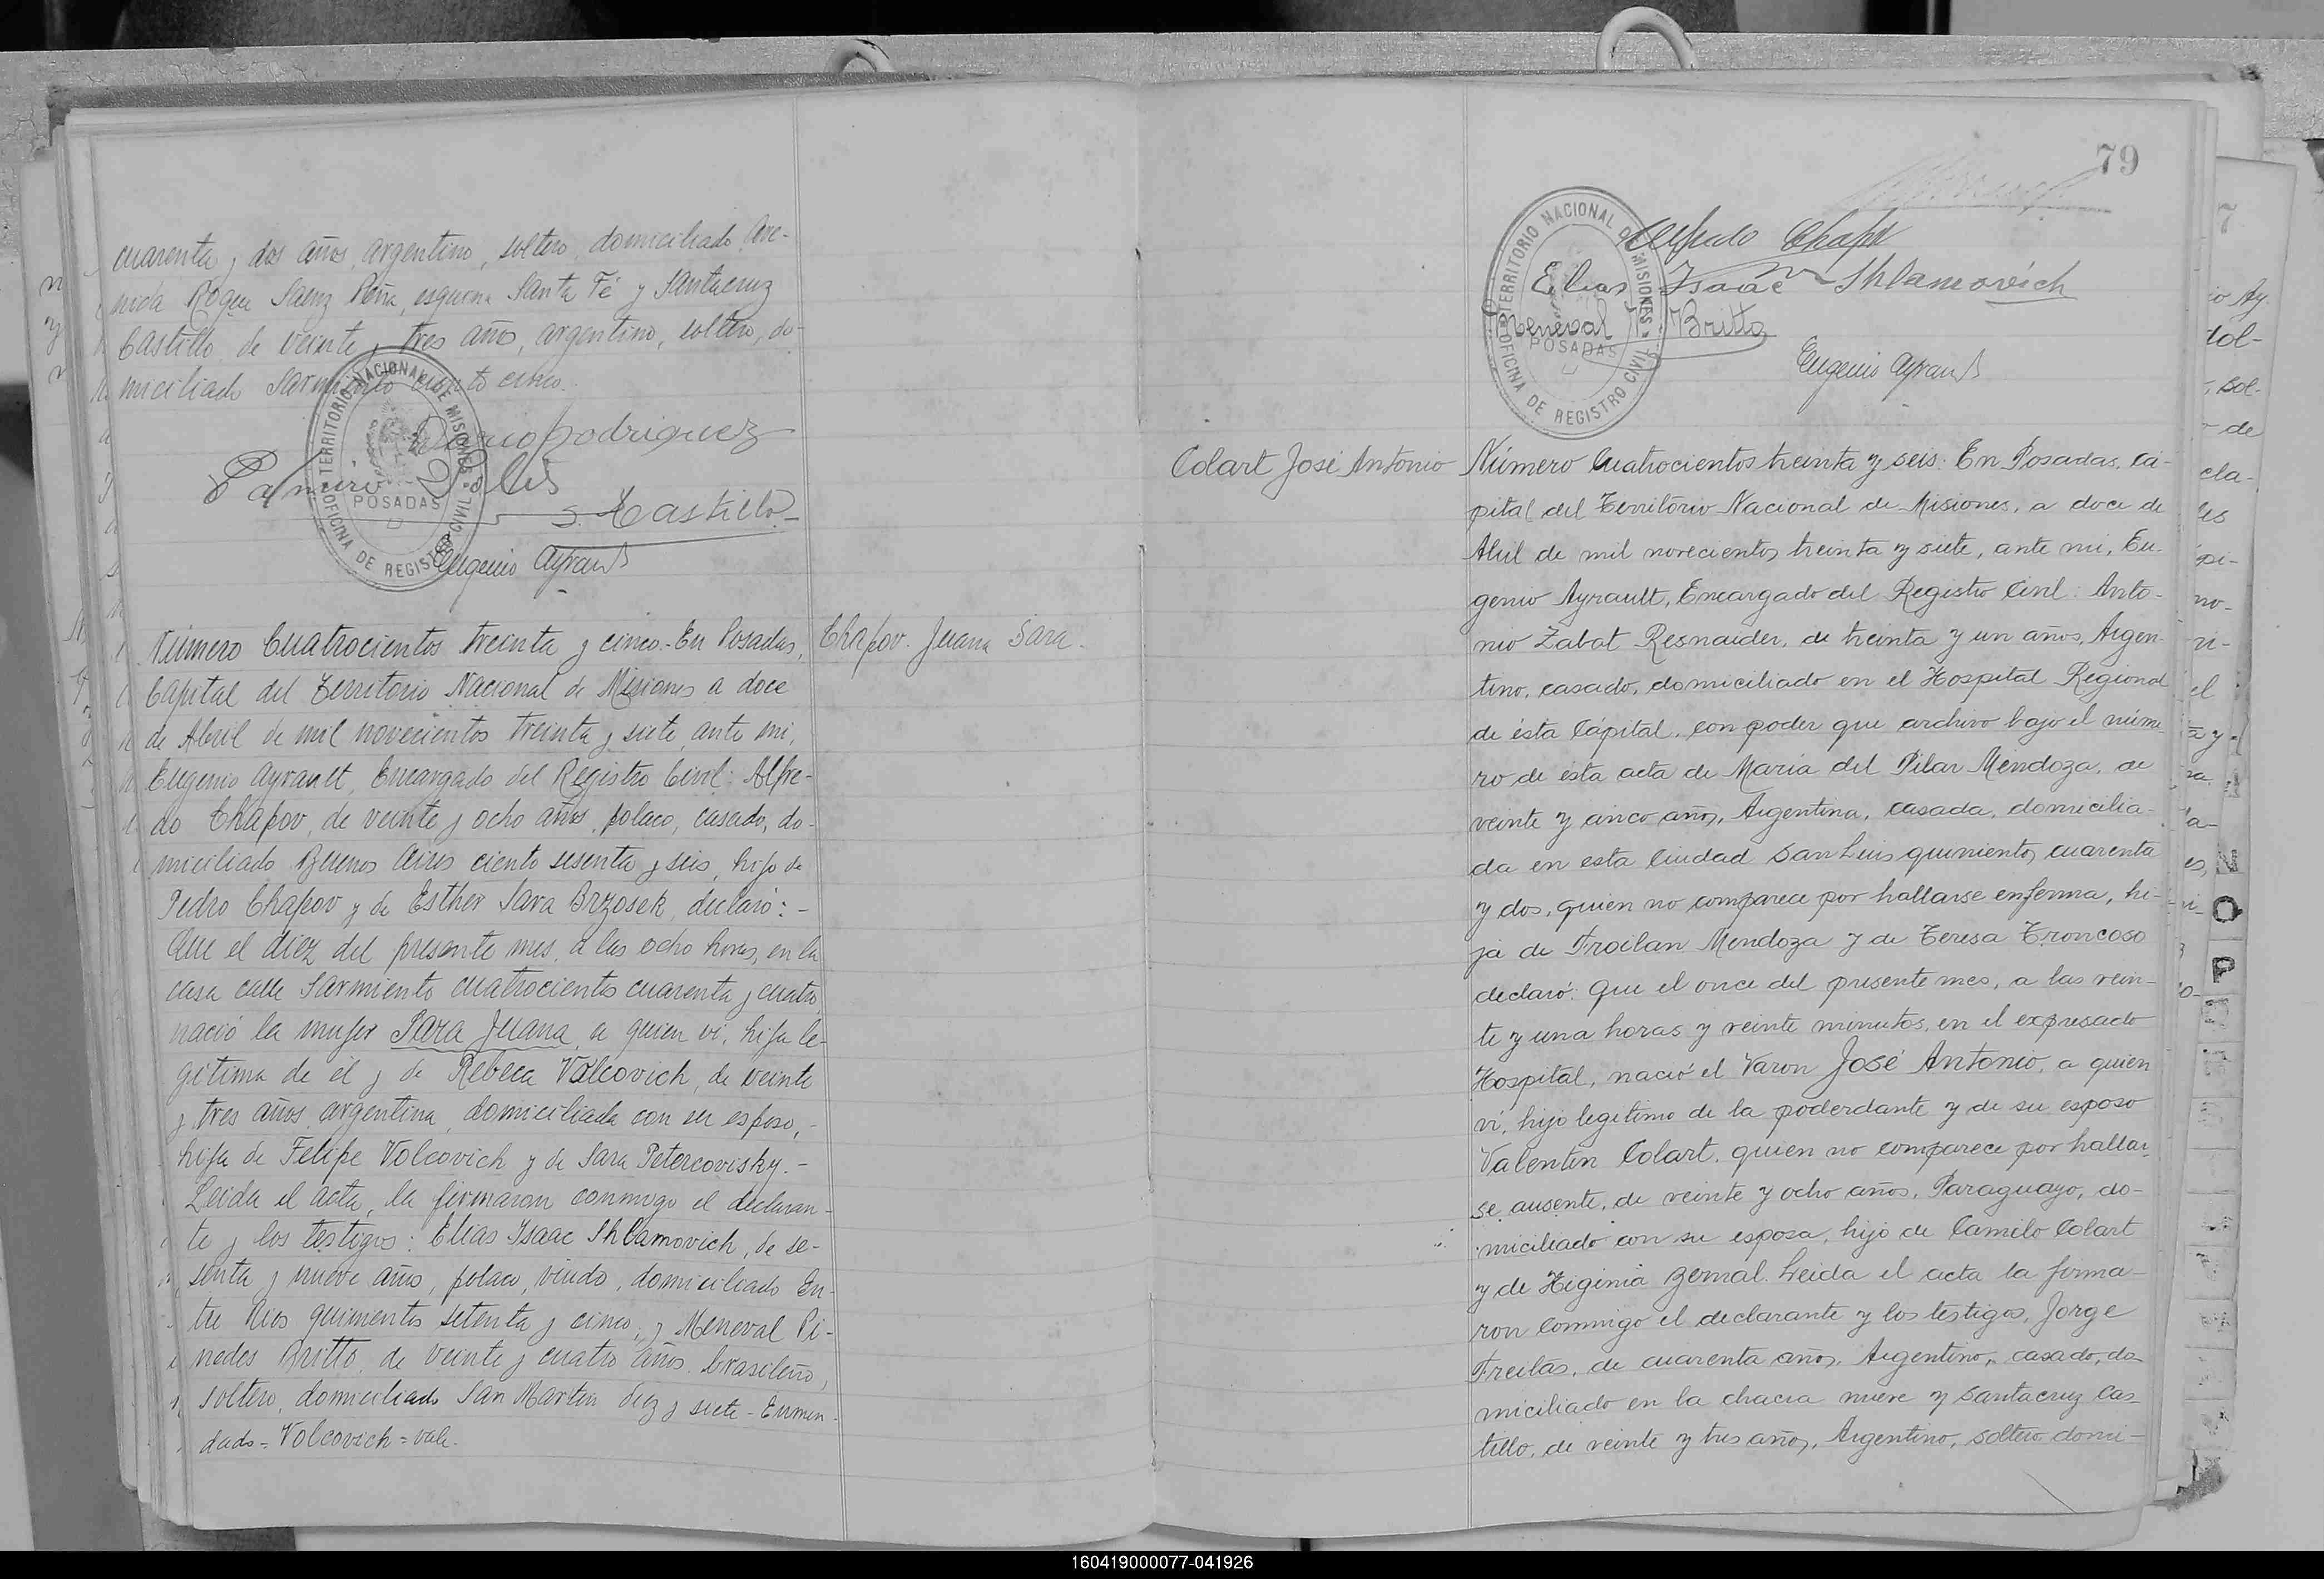 cuarenta y dos años, argentino, soltero, domiciliado Ave-
nida Roque Saenz Peña, esquina Santa Fé y Santacruz
Castillo, de veinte y tres años, argentino, soltero, do-
miciliado Sarmiento ciento cinco.
TERRITORIO NACIONAL DE MISIONES
POSADAS
OFICINA DE REGISTRO CIVIL
Rodriguez
Ramiro
S. Castillo
Eugenio Ayrault
Número Cuatrocientos treinta y cinco.- En Posadas,
Capital del Territorio Nacional de Misiones a doce
de Abril de mil novecientos treinta y siete, ante mi,
Eugenio Ayrault, Encargado del Registro Civil: Alfre-
do Chapov, de veinte y ocho años, polaco, casado, do-
miciliado Buenos Aires ciento sesenta y seis, hijo de
Pedro Chapov y de Esther Sara Brzosek, declaró: -
Que el diez del presente mes, a las ocho horas, en la
casa calle Sarmiento cuatrocientos cuarenta y cuatro,
nació la mujer Sara Juana, a quien vi, hija le-
gítima de él y de Rebeca Volcovich, de veinte
y tres años, argentina, domiciliada con su esposo, -
hija de Felipe Volcovich y de Sara Petercovisky. -
Leida el acta, la firmaron conmigo el declaran-
te y los testigos: Elías Isaac Shlamovich, de se-
senta y nueve años, polaco, viudo, domiciliado En-
tre Rios quinientos setenta y cinco, y Meneval Pi-
nedes Britto, de veinte y cuatro años, brasileño,
soltero, domiciliado San Martin diez y siete - Enmen-
dado = Volcovich = vale.
Chapov. Juana Sara.
79
TERRITORIO NACIONAL DE MISIONES
POSADAS
OFICINA DE REGISTRO CIVIL
Alfredo Chapov
Elias Isaac Shlamovich
Meneval P. Britto
Eugenio Ayrault
Colart José Antonio
Número Cuatrocientos treinta y seis: En Posadas, Ca-
pital del Territorio Nacional de Misiones, a doce de
Abril de mil novecientos treinta y siete, ante mi, Eu-
genio Ayrault, Encargado del Registro Civil: Anto-
nio Zabat Resnaider, de treinta y un años, Argen-
tino, casado, domiciliado en el Hospital Regional
de ésta Cápital, con poder que archivo bajo el núme-
ro de ésta acta de Maria del Pilar Mendoza, de
veinte y cinco años, Argentina, casada, domicilia-
da en esta Ciudad San Luis quinientos cuarenta
y dos, quien no comparece por hallarse enferma, hi-
ja de Froilan Mendoza y de Teresa Troncoso
declaró: Que el once del presente mes, a las vein-
te y una horas y veinte minutos, en el expresado
Hospital, nació el Varon José Antonio, a quien
vi, hijo legítimo de la poderdante y de su esposo
Valentin Colart, quien no comparece por hallar-
se ausente, de veinte y ocho años, Paraguayo, do-
miciliado con su esposa, hijo de Camilo Colart
y de Higinia Bernal. Leida el acta la firma-
ron conmigo el declarante y los testigos, Jorge
Freitas, de cuarenta años, Argentino, casado, do-
miciliado en la chacra nueve y Santacruz Cas-
tillo, de veinte y tres años, Argentino, soltero domi-
N
O
P
160419000077-041926